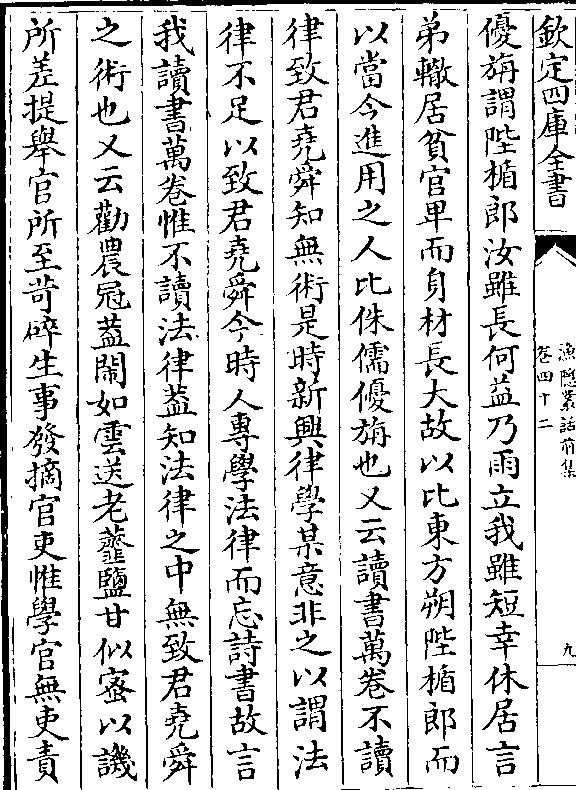 欽定四庫全書
漁隱叢話前集
卷四十二
九
優旃謂陛楯郎汝雖長何益乃雨立我雖短幸休居言
弟轍居貧官卑而身材長大故以比東方朔陛楯郎而
以當今進用之人比侏儒優旃也又云讀書萬卷不讀
律致君堯舜知無術是時新興律學某意非之以謂法
律不足以致君堯舜今時人專學法律而忘詩書故言
我讀書萬卷惟不讀法律葢知法律之中無致君堯舜
之術也又云勸農冠葢閙如雲送老虀鹽甘似蜜以譏
所差提舉官所至苛碎生事發摘官吏惟學官無吏責